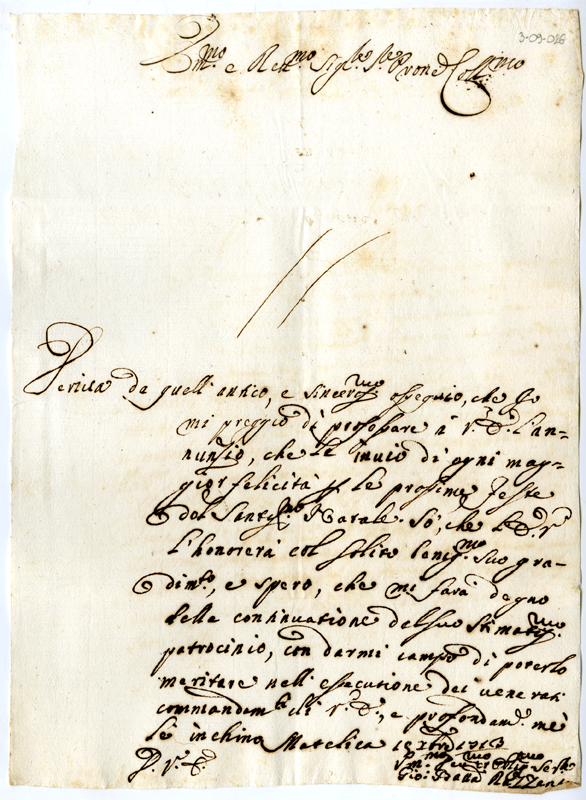 3-09-026
Ill.mo e Rev.mo Sig.re Sig.re Pron Coll.mo
Deriva da quell'antico, e sincerss.mo ossequio, che Io
mi preggio di professare à V.S. l'an-
nunzio, che Le invio di ogni mag-
gior felicità p le prossime feste
del Santiss.mo Natale. Sò, che
l'honorerà col solito benig.mo suo gra-
dim.to, e spero, che mi farà degno
della continuatione del suo stimatiss.mo
patrocinio, con darmi campo di poterlo
meritare nell'essecutione dei venerati
commandam.ti di V.S., e profondam.e me
le inchino Matelica 10 Xbre 1713
D. V. S.
Gio: Batta